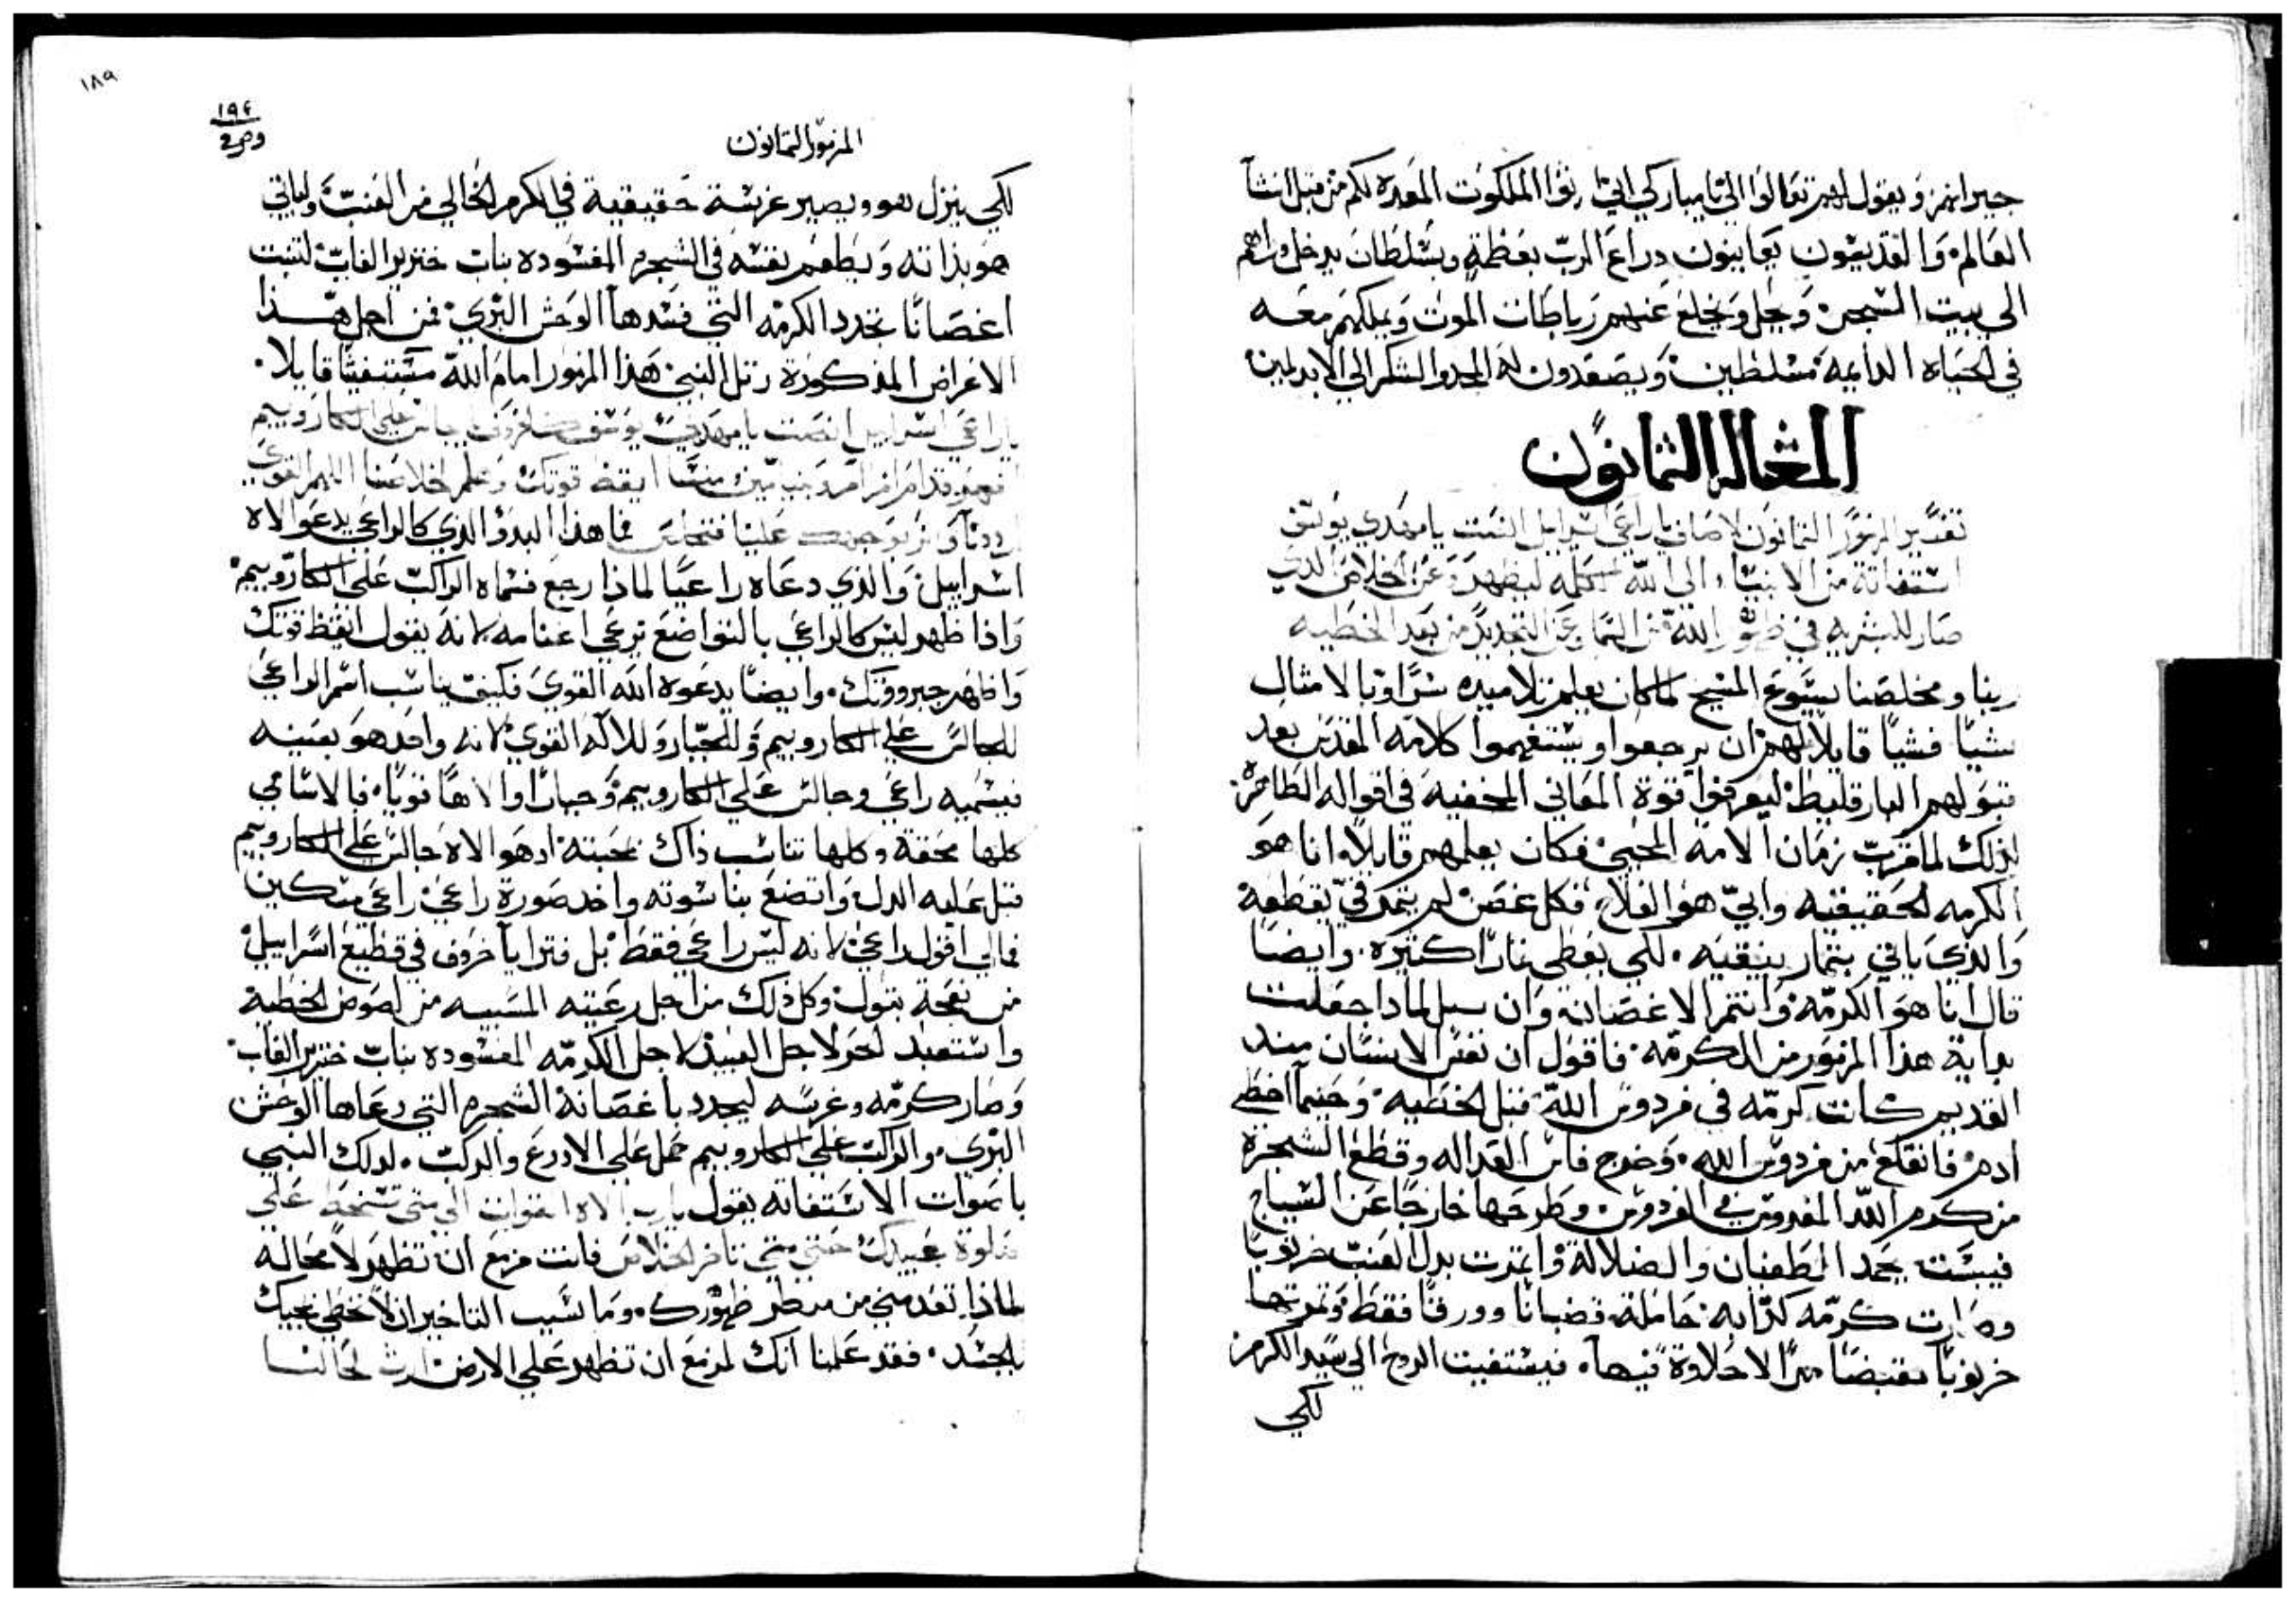 جيرانهم ويقول لهم تعالوا اليّ يا مباركي ابي رثوا الملكوت المعده لكم من قبل انشآ
العالم، والقديسون يعاينون دراع الربّ بعظمة وبسلطان يدخل وراهم
الي بيت السجن، ويحل ويخلع عنهم رباطات الموت ويملكهم معه
في الحياه الدايمة متسلطين، ويصعدون له المجد والشكر الي الابد امين
المقاله الثمانون
تفسير المزمور الثمانون لاصاف يا راعي اسراييل انصت يا مهدي يوسف
استغاثة من الانبيآ الي الله الكلمه ليظهر وعن الخلاص الذي
صار للبشريه في ظهور الله من السما وعن التجديد من بعد الخطيه
ربنا ومخلصنا يسوع المسيح لما كان يعلم تلاميده سرًا وبالامثال
شيًا فشيًا قايلاً لهم ان يرجعوا ويستفهموا كلامه المقدس بعد
قبولهم البارقليط ليعرفوا قوة المعاني المخفيه في اقواله الطاهره
لذلك لما قرب زمان الامه المحيي فكان يعلمهم قايلاً انا هو
الكرمه الحقيقيه وابيّ هو الفلاح، فكل غصن لم يثمر فيّ يقطعه
والذي ياتي بثمار ينقيه، لكي يعطي ثمارًا كثيره، وايضا
قال انا هو الكرمّه وانتم الاغصانه وان سيل لماذا جعلت
بداية هذا المزمور من الكرمّه، فاقول ان نفس الانسان مند
القديم كانت كرمّه في فردوس الله قبل الخطيه، وحينما اخطي
ادم، فانقلع من فردوس الله، وخرج فاس العداله وقطع الشجرة
من كرم الله المغروس في الفردوس، وطرحها خارجًا عن السياج
فيبست بحمد الطغيان والضلالة واثمرت بدل العنب خرنوبًا
وصارت كرمّه كدابه حاملة قضبانًا وورقًا فقط وثمرتها
خرنوبًا مقبضًا مرًا لا حلاوة فيها، فيستغيث الروح الي سيد الكرم
لكي
١٨٩
١٩٤
المزمور الثمانون
لكي ينزل هو ويصير غرسة حقيقية في الكرم الخالي من العنب وياتي
هو بذاته ويطعم نفسه في الشجره المفسوده بناب خنزير الغاب لتنبت
اغصانًا تجدد الكرمّه التي فسدها الوحش البري، فمن اجل هذا
الاغراض المذكورة رتل النبي هذا المزمور امام الله مستغيثًا قايلا
يا راعي اسراييل انصت يا مهدي يوسف كالخروف جالس علي الكاروبيم
اظهر قدام افرام وبنيامين ومنسا ايقظ قوتك وهلم لخلاصنا اللهم القوي
ارددنا ونر بوجهك علينا فنخلص فما هذا البدؤ الذي كالراعي يدعو الاه
اسراييل، والذي دعاه راعيًا لماذا رجع فسماه الراكب علي الكاروبيم
واذا ظهر ليس كالراعي بالتواضع يرعي اغنامه لانه يقول ايقظ قوتك
واظهر جبروتك، وايضًا يدعوه الله القوي فكيف يناسب اسم الراعي
للجالس علي الكاروبيم وللجبار وللاله القوي لانه واحد هو بعينه
فيسميه راعي وجالس علي الكاروبيم وجبارًا والاهًا قويًا، فالاسامي
كلها محقة وكلها تناسب ذاك بمحبته اد هو الاه جالس علي الكاروبيم
قبل عليه الدل واتضع بناسوته واخد صورة راعي راعي مسكين
فمالي اقول راعي لانه ليس راعي فقط، بل فترايآ خروف في قطيع اسراييل
من نعجة بتول، وكل ذلك من اجل رعيته المسبيه من لصوص الخطيه
واستعبد الحر لاجل العبيد لاجل الكرمّه المفسوده بناب خنزير الغاب
وصار كرمّه وغرسه ليجدد باغصانه الشجره التي رعاها الوحش
البري، والراكب علي الكاروبيم حمل علي الادرع والركب، لدلك النبي
باصوات الاستغاثه يقول يا رب الاه القوات الي متي تسخط علي
صلوة عبيدك حتي متي تاخر الخلاص فانت مزمع ان تظهر لا محاله
لماذا تعدمني من منظر ظهورك، وما سبب التاخير ان لا نحظي بمجيك
بالجسد، فقد علمنا انك لمزمع ان تظهر علي الارض